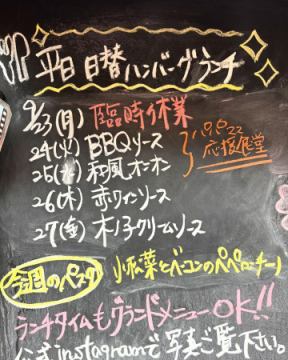 平日 日替ハンバーグランチ
9/23(月) 臨時休業
24(火) BBQソース
25(水) 和風オニオン
応援食堂
26(木) 赤ワインソース
27(金) キノコクリームソース
今週のパスタ 小松菜とベーコンのペペロンチーノ
ランチタイムもグランドメニューOK!!
公式instagramで写真ご覧下さい。